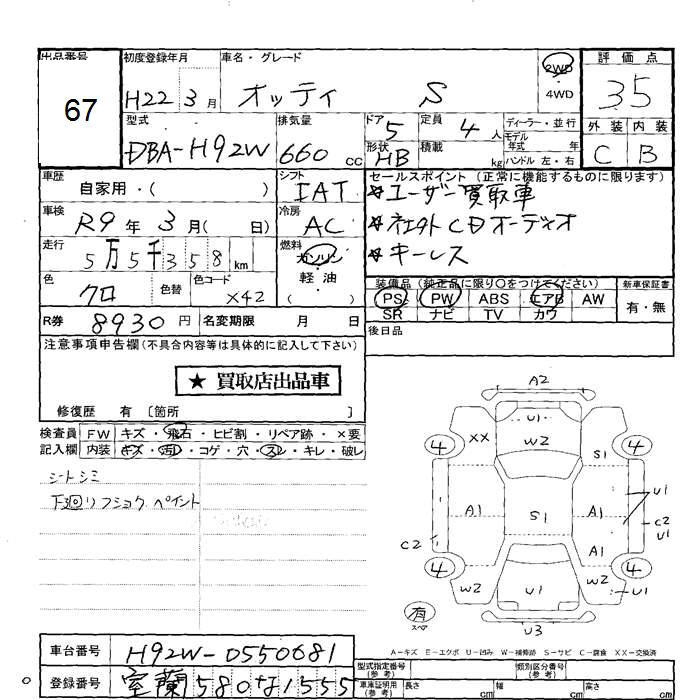 出品番号
67
初度登録年月
H22 3月
車名・グレード
オッティ S
2WD
4WD
評価点
3.5
型式
DBA-H92W
排気量
660 cc
ドア 5
形状 HB
定員 4 人
積載 kg
ディーラー・並行
モデル年式 年
ハンドル 左・右
外装 内装
C B
車歴
自家用・( )
シフト
IAT
セールスポイント(正常に機能するものに限ります)
☆ユーザー買取車
☆社外CDオーディオ
☆キーレス
車検
R9年 3月( 日)
冷房
AC
走行
5万5千358km
燃料
ガソリン
・
軽油
( )
色
クロ
色替
色コード
X42
装備品(純正品に限り○をつけてください)
PS PW ABS エアB AW
SR ナビ TV カワ
新車保証書
有・無
R券 8930円
名変期限 月 日
後日品
注意事項申告欄(不具合内容等は具体的に記入して下さい)
★ 買取店出品車
修復歴 有 〔箇所 〕
検査員 FW キズ・飛石・ヒビ割・リペア跡・×要
記入欄 内装 キズ・汚・コゲ・穴・スレ・キレ・破レ
シートシミ
下回リフショク.ペイント
A2
U1
XX
W2
4
4
S1
U1
A1
S1
A1
C2
U1
C2
A1
4
4
W2
U1
W2
U1
有
スペア
U3
A-キズ E-エクボ U-凹み W-補修跡 S-サビ C-腐食 XX-交換済
車台番号
H92W-0550681
登録番号
室蘭580な1555
型式指定番号(参考)
類別区分番号(参考)
車庫証明用(参考) 長さ cm 幅 cm 高さ cm